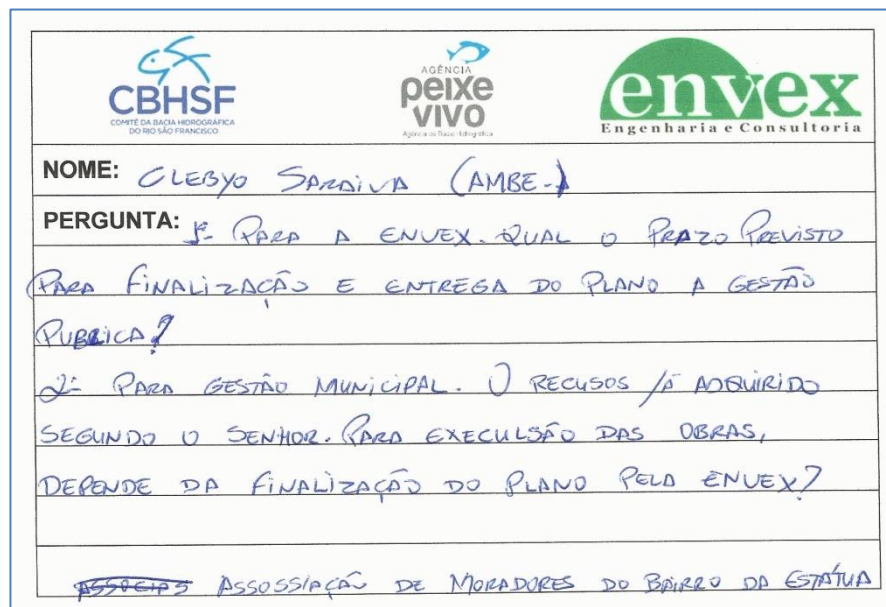 CBHSF
COMITÊ DA BACIA HIDROGRÁFICA
DO RIO SÃO FRANCISCO
AGÊNCIA
peixe
vivo
envex
Engenharia e Consultoria
NOME: CLEBYO SARAIVA (AMBE-
PERGUNTA: 1ª- PARA A ENVEX. QUAL O PRAZO PREVISTO
PARA FINALIZAÇÃO E ENTREGA DO PLANO A GESTÃO
PUBLICA?
2ª PARA GESTÃO MUNICIPAL. O RECUSOS JÁ ADQUIRIDO
SEGUNDO O SENHOR. PARA EXECULSÃO DAS OBRAS,
DEPENDE DA FINALIZAÇÃO DO PLANO PELA ENVEX?
ASSOSSIAÇÃO DE MORADORES DO BAIRRO DA ESTÁTUA